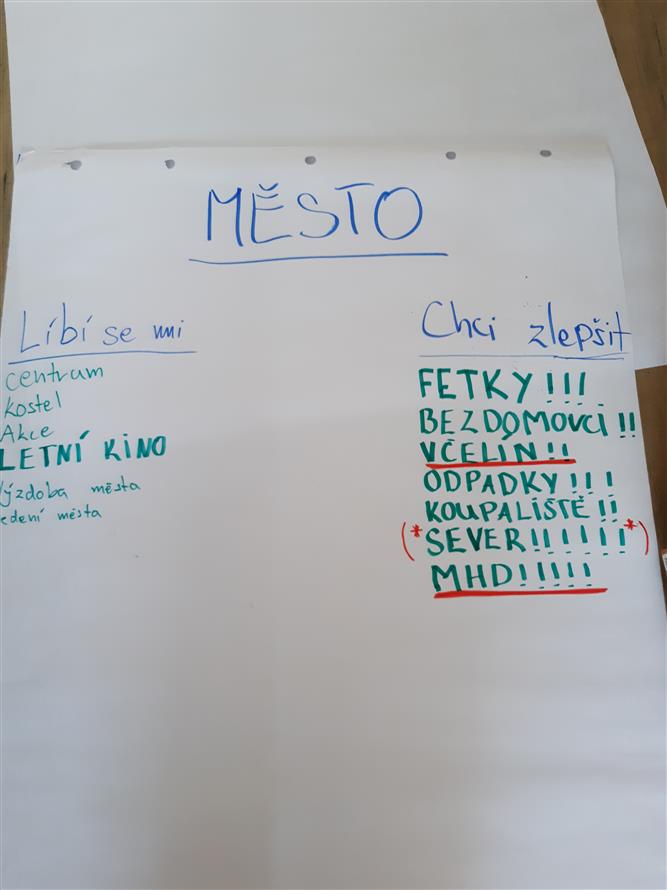 MĚSTO
Líbí se mi
centrum
kostel
Akce
LETNÍ KINO
Výzdoba města
edení města
Chci zlepšit
FETKY!!!
BEZDOMOVCI!!
VČELÍN!!
ODPADKY!!!
KOUPALIŠTĚ!!
(*SEVER!!!!!!*)
MHD!!!!!